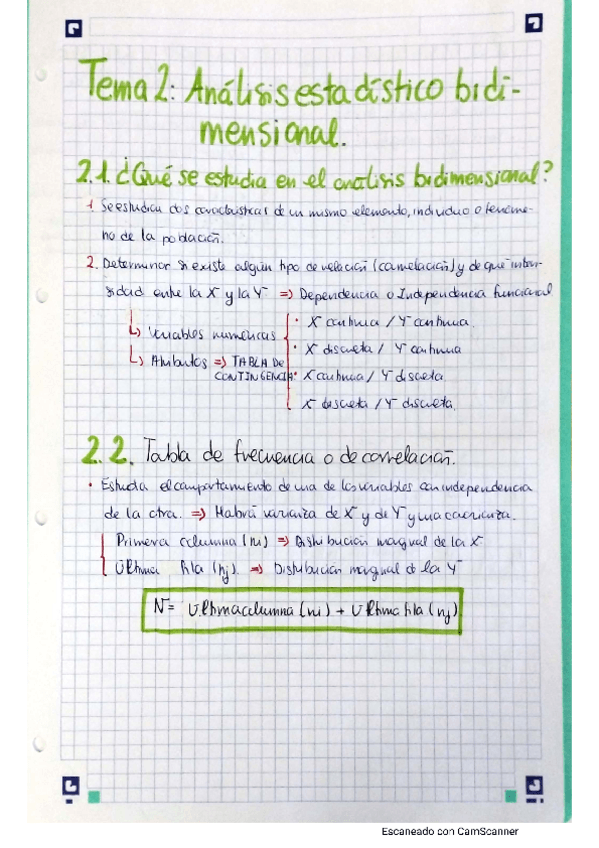 Tema 2: Análisis estadístico bidi-
mensional.
2.1. ¿Qué se estudia en el análisis bidimensional?
1. Se estudian dos características de un mismo elemento, individuo o fenóme-
no de la población.
2. Determinar si existe algún tipo de relación (correlación) y de qué inten-
sidad entre la X y la Y => Dependencia o Independencia funcional
↳ Variables numéricas
• X continua / Y continua.
• X discreta / Y continua
↳ Atributos => TABLA DE CONTINGENCIA
• X continua / Y discreta.
X discreta / Y discreta.
2.2. Tabla de frecuencia o de correlación.
• Estudia el comportamiento de una de las variables con independencia
de la otra. => Habrá varianza de X y de Y y una covarianza.
Primera columna (ni) => Distribución marginal de la X
Última fila (nj). => Distribución marginal de la Y
N = Última columna (ni) + Última fila (nj)
Escaneado con CamScanner